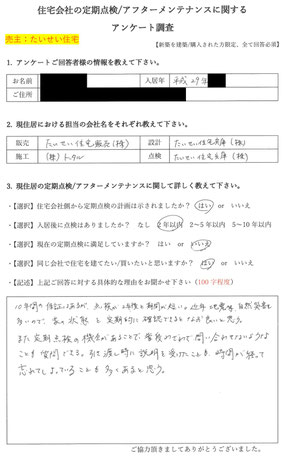 住宅会社の定期点検/アフターメンテナンスに関する
アンケート調査
売主：たいせい住宅
【新築を建築/購入された方限定、全て回答必須】
1. アンケートご回答者様の情報を教えて下さい。
お名前 入居年 平成29年
ご住所
2. 現住居における担当の会社名をそれぞれ教えて下さい。
販売 たいせい住宅販売(株) 設計 たいせい住宅兵庫(株)
施工 (株)トータル 点検 たいせい住宅兵庫(株)
3. 現住居の定期点検/アフターメンテナンスに関して詳しく教えて下さい。
・【選択】住宅会社側から定期点検の計画は示されましたか？ はい or いいえ
・【選択】入居後に点検はありましたか？ なし 2年以内 2～5年以内 5～10年以内
・【選択】現在の定期点検に満足していますか？ はい or いいえ
・【選択】同じ会社で住宅を建てたい/買いたいと思いますか？ はい or いいえ
・【記述】上記ご回答に対する具体的な理由をお聞かせ下さい（100字程度）
10年間の保証はあるが、点検が2年後と期間が短い。近年地震等、自然災害も
多いので、家の状態を定期的に確認できるとなお良いと思う。
また定期点検の機会があることで、普段わざわざ問い合わせないような
ことも質問できる。引き渡し時に説明を受けたことも、時間が経って
忘れてしまっていることも多くあると思う。
ご協力頂きましてありがとうございました。